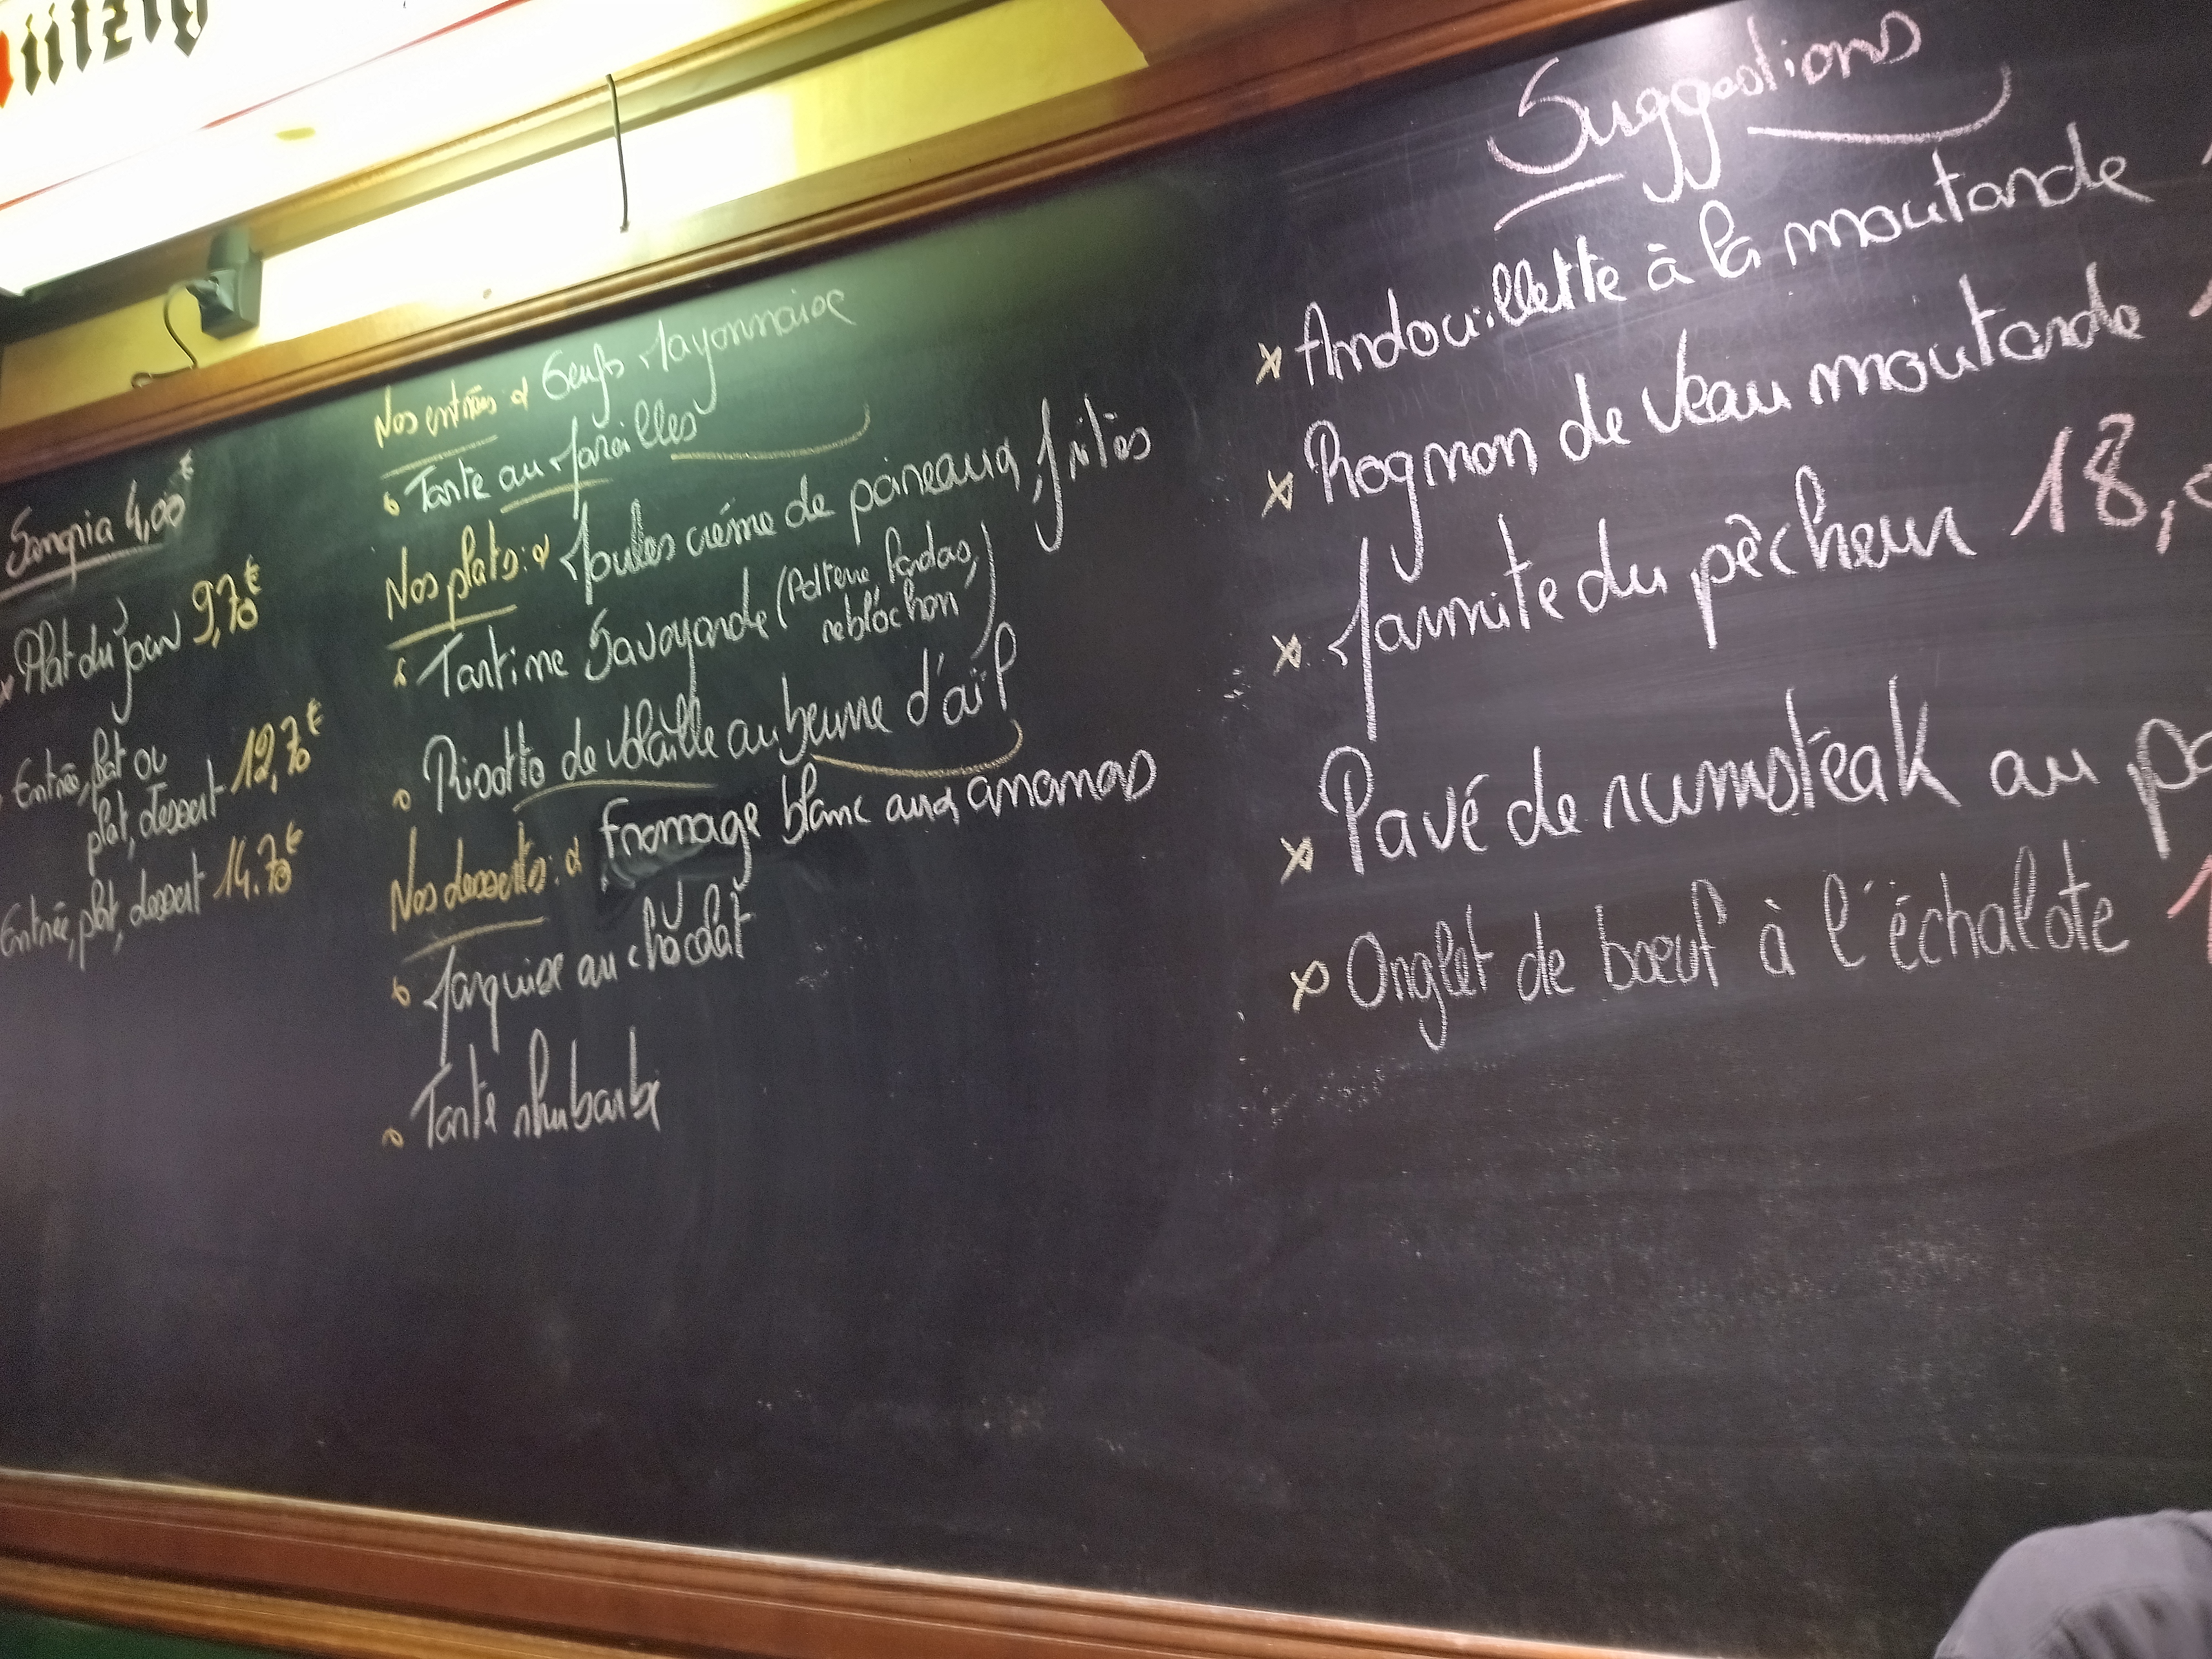 ützig
Sangria 4,00€
Plat du jour 9,70€
Entrée, plat ou
plat, dessert 12,70€
Entrée, plat, dessert 14.70€
Nos entrées Oeufs Mayonnaise
Tarte au Maroilles
Nos plats: Moules crème de poireaux, frites
Tartine Savoyarde (Pdterre, lardons,
reblochon)
Risotto de volaille au beurre d'aïl
Nos desserts: Fromage blanc aux ananas
Marquise au chocolat
Tarte rhubarbe
Suggestions
Andouillette à la moutarde
Rognon de Veau moutarde
Marmite du pêcheur 18,
Pavé de rumsteak au
Onglet de bœuf à l'échalote